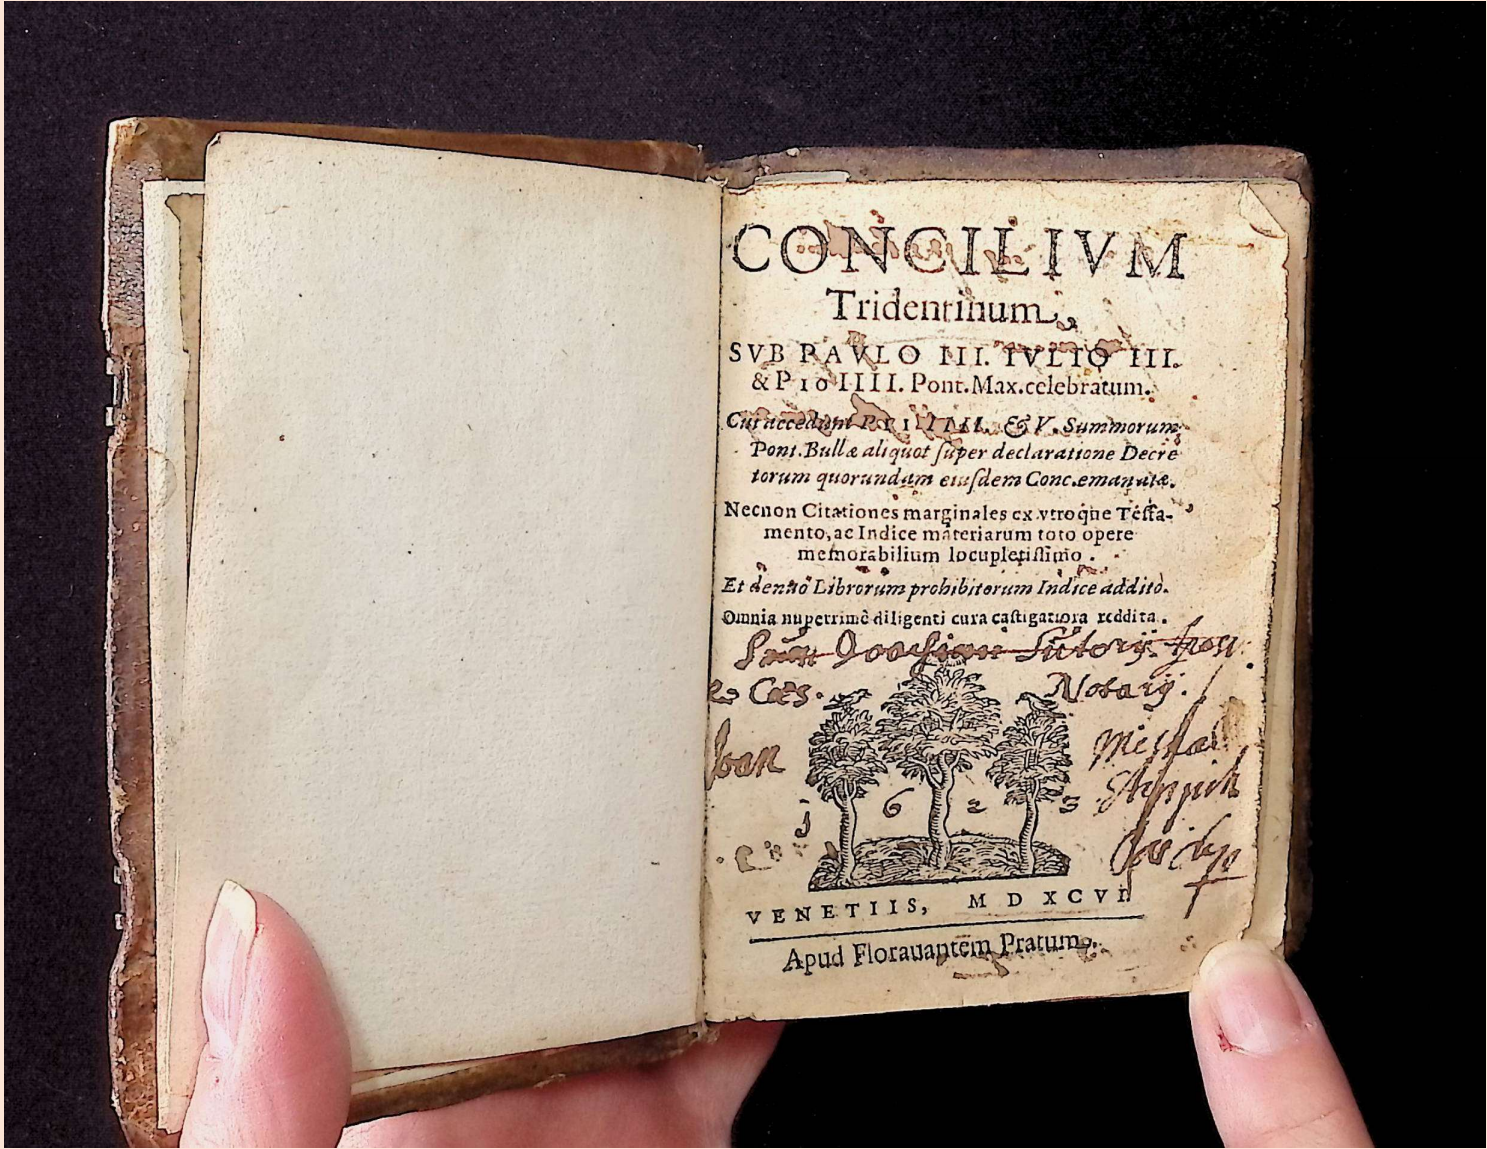 CONCILIVM
Tridentinum,
SVB PAVLO III. IVLIO III.
& PIO IIII. Pont. Max. celebratum.
Cui accedunt PII IIII. & V. Summorum
Pont. Bullæ aliquot ſuper declaratione Decre
torum quorundam eiuſdem Conc. emanatæ.
Necnon Citationes marginales ex vtroque Teſta-
mento, ac Indice materiarum toto opere
memorabilium locupletiſſimo.
Et denuò Librorum prohibitorum Indice addito.
Omnia nuperrimè diligenti cura caſtigatiora reddita.
Joachim Sutorij
Cæs. Notarij.
Joan
1 6 2 3
VENETIIS, M D XCVI.
Apud Florauantem Pratum.